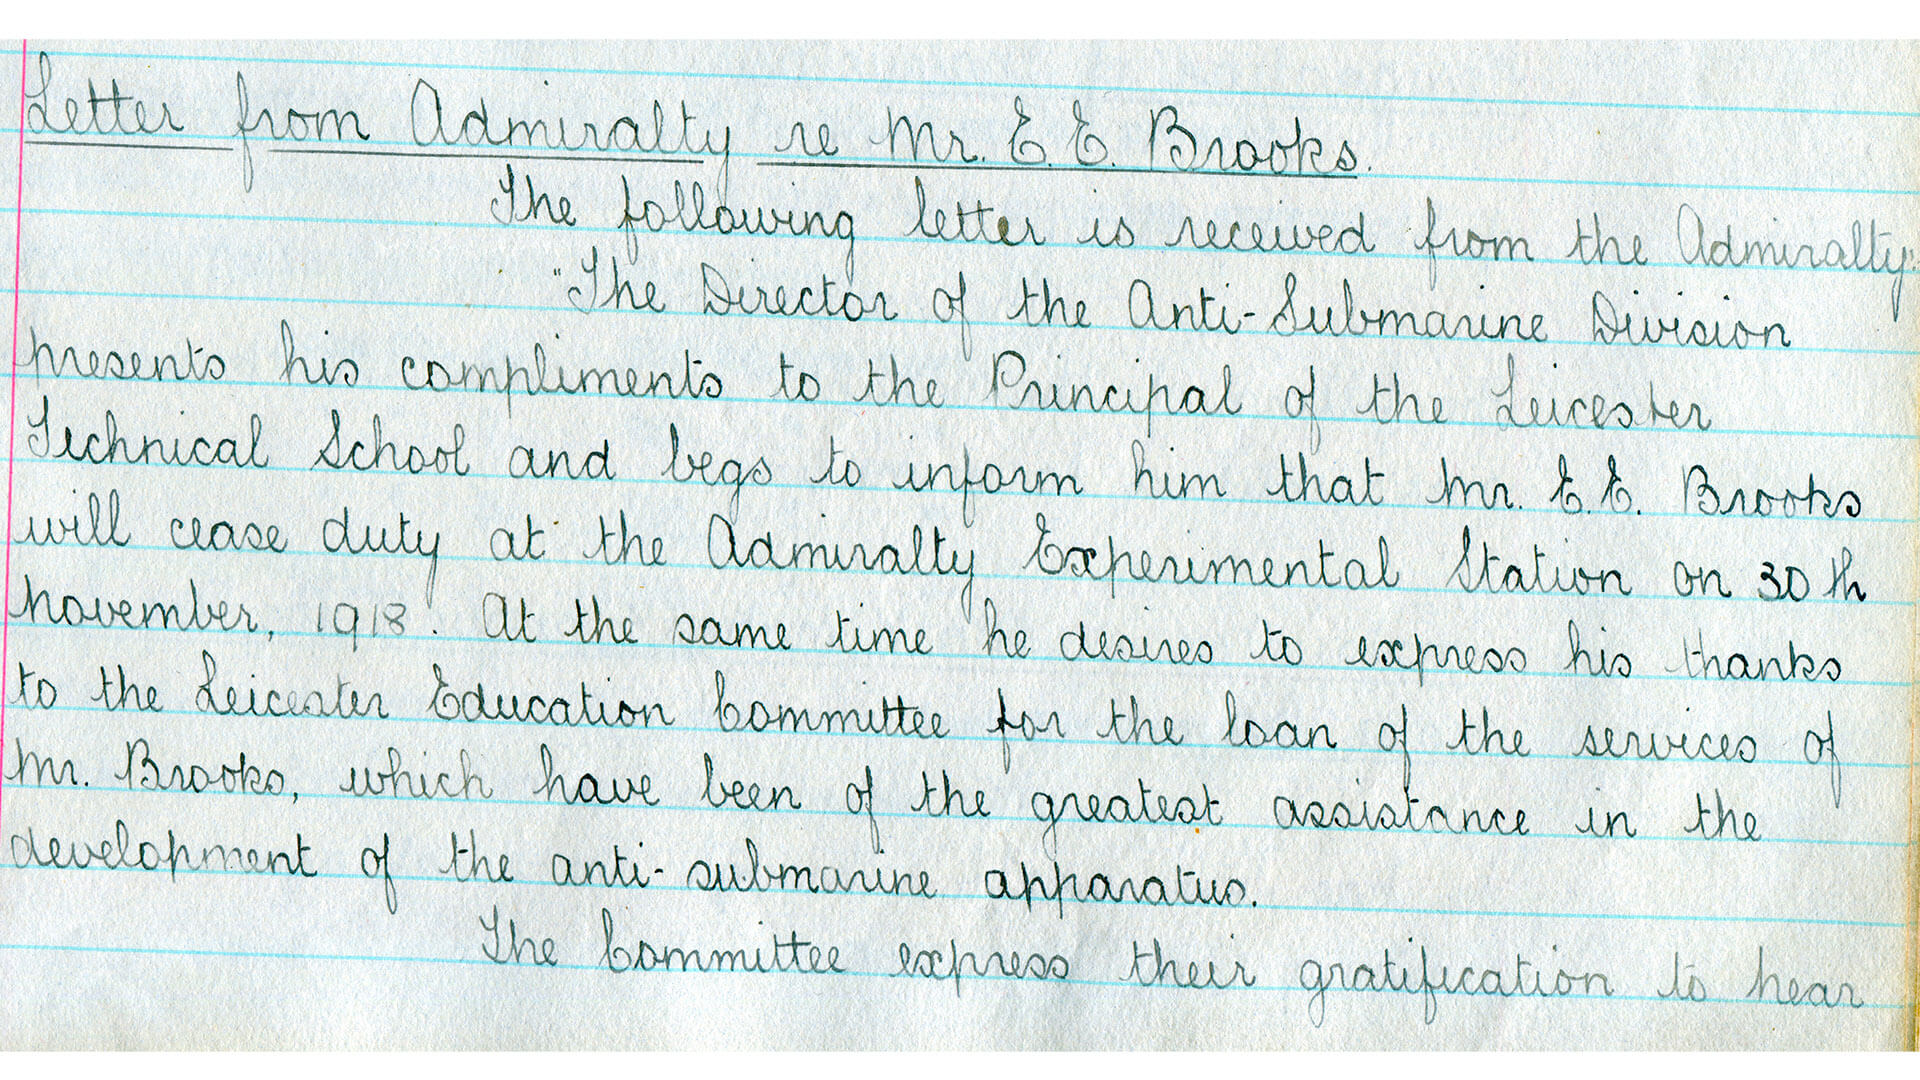 Letter from Admiralty re Mr. E. E. Brooks.
The following letter is received from the Admiralty:
"The Director of the Anti-Submarine Division
presents his compliments to the Principal of the Leicester
Technical School and begs to inform him that Mr. E. E. Brooks
will cease duty at the Admiralty Experimental Station on 30th
November, 1918. At the same time he desires to express his thanks
to the Leicester Education Committee for the loan of the services of
Mr. Brooks, which have been of the greatest assistance in the
development of the anti-submarine apparatus.
The Committee express their gratification to hear